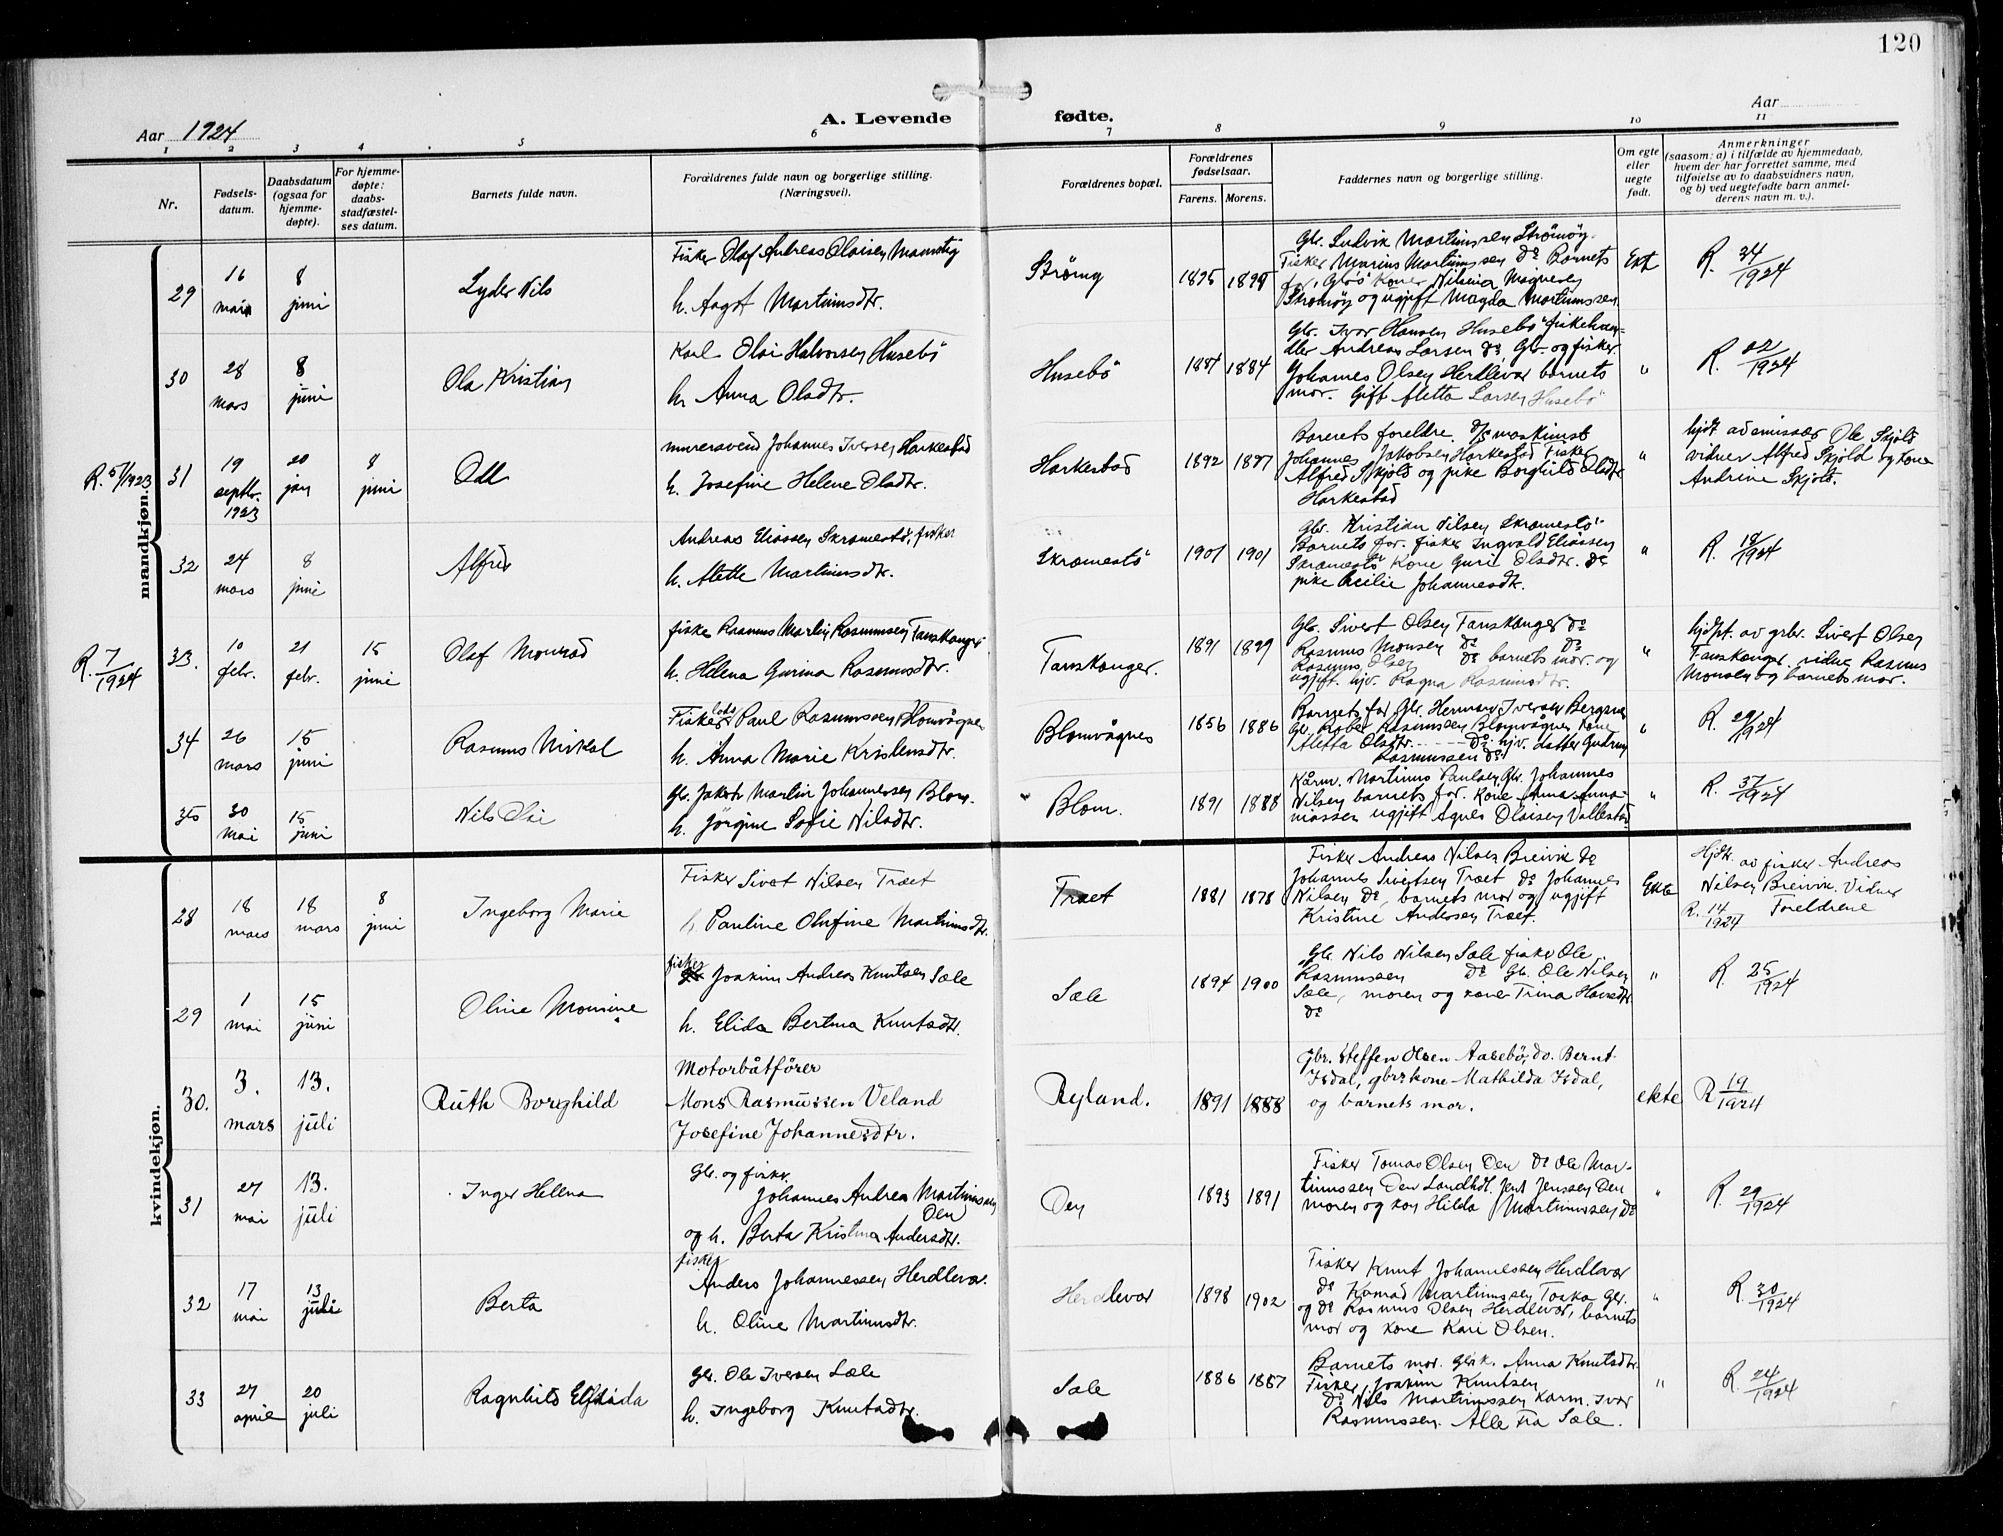 120
Aar 1924
A. Levende fødte.
Aar
1 2 3 4 5 6 7 8 9 10 11
Nr.
Fødsels-
datum.
Daabsdatum
(ogsaa for
hjemme-
døpte).
For hjemme-
døpte:
daabs-
stadfæstel-
ses datum.
Barnets fulde navn.
Forældrenes fulde navn og borgerlige stilling.
(Næringsvei).
Forældrenes bopæl.
Forældrenes
fødselsaar.
Farens. Morens.
Faddernes navn og borgerlige stilling.
Om egte
eller
uegte
født.
Anmerkninger
(saasom: a) i tilfælde av hjemmedaab,
hvem der har forrettet samme, med
tilføielse av to daabsvidners navn,
og b) ved uegtefødte barn anmel-
derens navn m. v.).
mandkjøn.
29
16
8
juni
Lyder Nils
Fisker Olaf Andreas Olaisen
h. Aagot Martinusdtr.
1895
Gbr. Ludvik Martinussen Strømøy.
Fisker Marius Martinussen Do Barnets
Strømøy og ugift Magda Martinussen
Ekt
R. 34/1924
30
28
mars
8
juni
Ola Kristian
Karl Olai Halvorsen Husebö
h. Anna Olsdtr.
Husebö
1884
Gbr. Ivar Hansen Husebö fiskehan-
dler Andreas Larsen do, Gbr. og fisker
Johannes Olsen Herdlevær barnets
mor. Gift Aletta Larsen Husebö
"
R. 22/1924
31
19
septbr.
1923
20
jan
8
juni
Odd
murersvend Johannes Iversen Harkestad
h. Josefine Helene Olsdtr.
Harkestad
1892
Johannes Jakobsen Harkestad Fisker
Alfred Skjold og pike Borghild Olsdtr
Harkestad
"
hjdt. av emissær Ole Skjold
vidner Alfred Skjold og kone
Andrine Skjold.
32
24
mars
8
juni
Alfred
Andreas Eliassen Skramestö, fisker
h. Alette Martinusdtr.
Skramestö
1901
1901
Gbr. Kristian Nilsen Skramestö
Barnets far. fisker Ingvald Eliassen
Skramestö Kone Guri Olsdtr. Do
pike Cecilie Johannesdtr.
"
R. 18/1924
R 7/1924
33.
10
febr.
21
febr.
15
juni
Olaf Monrad
fisker Rasmus Martin Rasmussen Tarskanger
h. Helena Gurina Rasmusdtr.
Tarskanger.
1891
1899
Gbr. Sivert Olsen Tarskanger Do
Rasmus Monsen Do
Rasmus Olsen Do barnets mor. og
ugift. hjv. Ragna Rasmusdtr.
"
hjdpt. av grbr. Sivert Olsen
Tarskanger. vidne Rasmus
Monsen og barnets mor.
34
26
mars
15
juni
Rasmus Mikal
Fisker Paul Rasmussen Blomvågnes
h. Anna Marie Kristensdtr.
Blomvågnes
1856
1886
Barnets far Gbr. Herman Iversen
Rasmussen Blomvågnes Kone
Aletta Olsdtr. Do hjv. datter Gudrun
Rasmussen do
"
R. 20/1924
35
30
mai
15
juni
Nils Olai
Gbr. Jakob Martin Johannessen Blom.
h. Jörgine Sofie Nilsdtr.
Blom.
1891
1888
Kårm. Martinus Paulsen Gbr. Johannes
Nilsen barnets far. Kone Anna
ugift Agnes Olaisen Vallestad
"
R. 37/1924
kvindekjøn.
28
18
mars
18
mars
8
juni
Ingeborg Marie
Fisker Sivert Nilsen Træet
h. Pauline Olufine Martinusdtr.
Træet
1881
1878
Fisker Andreas Nilsen Breivik do
Johannes Sivertsen Træet do Johannes
Nilsen Do, barnets mor og ugift
Kristine Andersen Træet.
Ekte
Hjdt. av fisker Andreas
Nilsen Breivik. Vidner
R. 14/1924 Foreldrene
29
1
mai
15
juni
Oline Monsine
fisker
Joakim Andreas Knutsen Sæle
h. Elida Bertina Knutsdtr.
Sæle
1894
1900
Gbr. Nils Nilsen Sæle fisker Ole
Rasmussen Do Gbr. Ole Nilsen
Sæle, moren og kone Trina Hansdtr
Do
"
R. 25/1924
30.
3.
mars
13.
juli
Ruth Borghild
Motorbåtförer
Mons Rasmussen Veland
Josefine Johannesdtr.
Ryland.
1891
1888
Gbr. Steffen Olsen Aasebö, do. Bernt
Isdal, gbrskone Mathilda Isdal,
og barnets mor.
ekte
R 19/1924
31
27
mai
13.
juli
Inger Helena
Gbr. og fisker.
Johannes Andrea Martinussen
Oen
og h. Berta Kristina Andersdtr.
Oen
1893
1891
Fisker Tomas Olsen Oen Do Ole Mar-
tinussen Oen Landhdl. Jens Jenssen Oen
moren og Hilda Martinussen Do
"
R. 29/1924
32
17
mai
13
juli
Berta
fisker
Anders Johannessen Herdlevær.
h. Oline Martinusdtr.
Herdlevær
1898
1902
Fisker Knut Johannessen Herdlevær
Do Konrad Martinussen Toska Gbr.
og do Rasmus Olsen Herdlevær, barnets
mor og kone Kari Olsen.
"
R. 30/1924
33
27
april
20
juli
Ragnhild Elfrida
Gbr. Ole Iversen Sæle
h. Ingeborg Knutsdtr.
Sæle
1886
1887
Barnets mor. Gbrk. Anna Knutsdtr.
Fisker Joakim Knutsen
Do Nils Martinussen Karm. Ivar
Rasmussen. Alle fra Sæle.
"
R. 24/1924